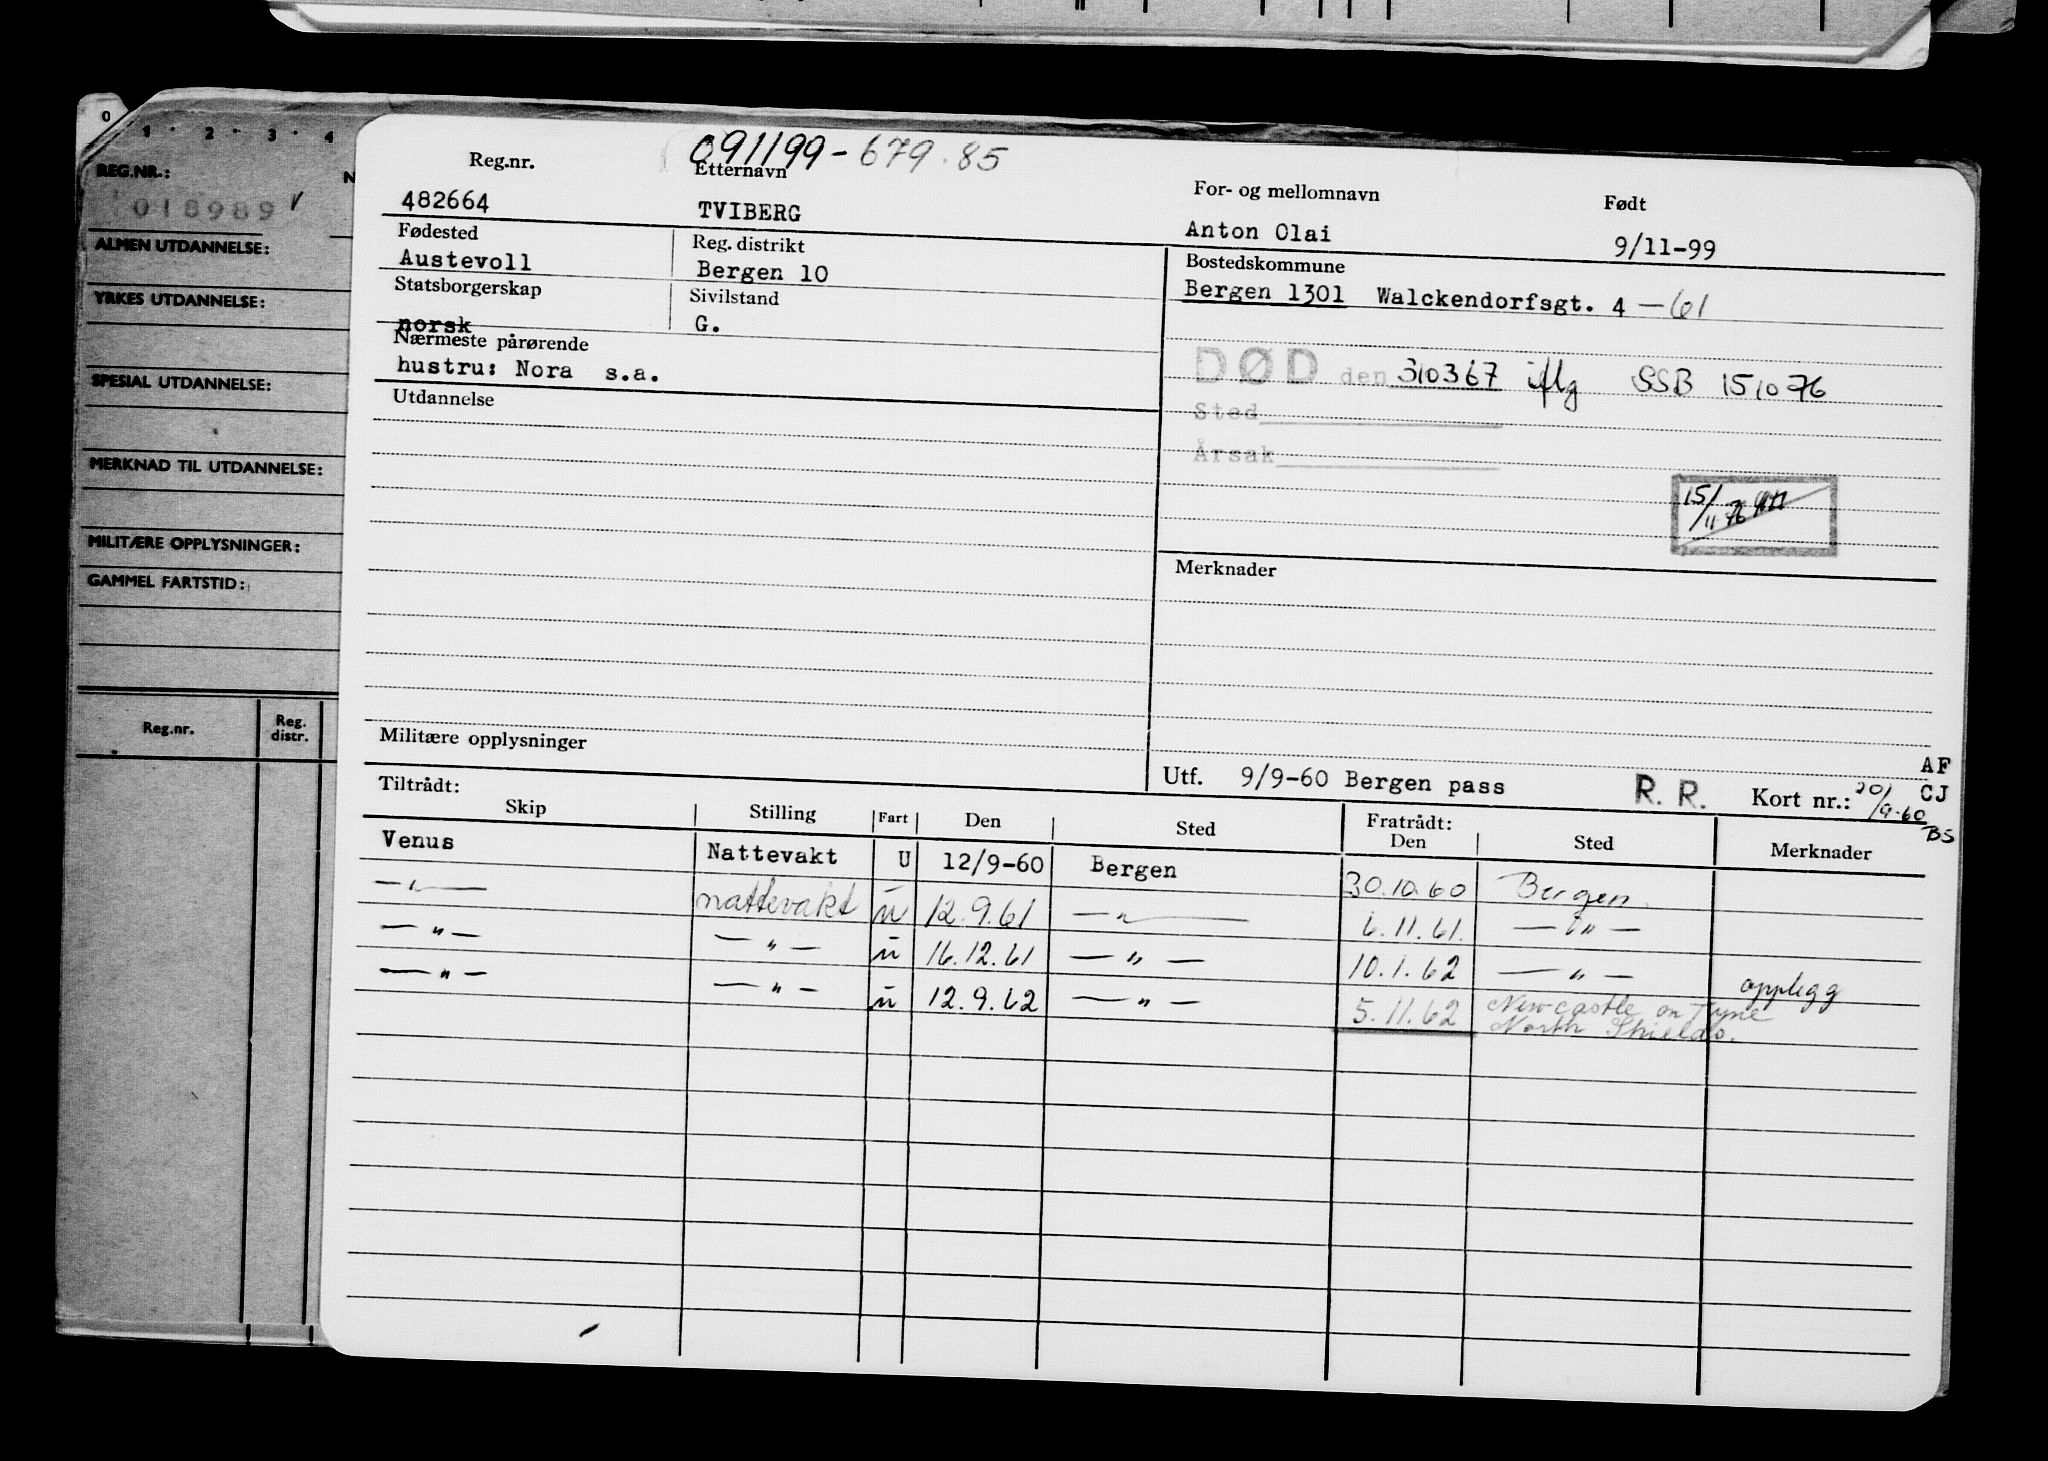 0 1 2 3 4
REG.NR.: N
018989 v
ALMEN UTDANNELSE:
YRKES UTDANNELSE:
SPESIAL UTDANNELSE:
MERKNAD TIL UTDANNELSE:
MILITÆRE OPPLYSNINGER:
GAMMEL FARTSTID:
Reg.nr. Reg. distr.
091199-679.85
Reg.nr. Etternavn For- og mellomnavn Født
482664 TVIBERG Anton Olai 9/11-99
Fødested Reg. distrikt Bostedskommune
Austevoll Bergen 10 Bergen 1301 Walckendorfsgt. 4 -61
Statsborgerskap Sivilstand
norsk G.
Nærmeste pårørende
hustru: Nora s.a.
DØD den 310367 iflg SSB 151076
Utdannelse
Sted
Årsak
15/11 76
Merknader
Militære opplysninger
AF
Utf. 9/9-60 Bergen pass R. R. Kort nr.: 20/9-60 CJ
BS
Tiltrådt: Fratrådt:
Skip Stilling Fart Den Sted Den Sted Merknader
Venus Nattevakt U 12/9-60 Bergen 30.10.60 Bergen.
—"— nattevakt u 12.9.61 —"— 6.11.61. —"—
—"— —"— u 16.12.61 —"— 10.1.62 —"— opplegg
—"— —"— u 12.9.62 —"— 5.11.62 Newcastle on Tyne
North Shields.